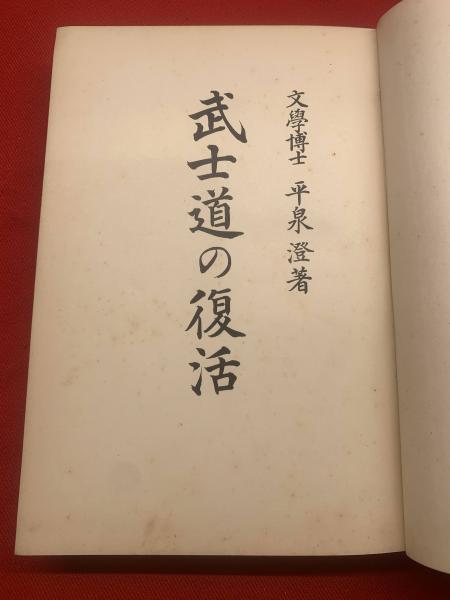 文學博士 平泉 澄著
武士道の復活